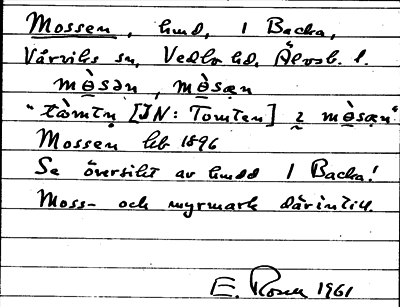 Mossen, hmd, 1 Backa,
Vårviks sn, Vedbo hd, Älvsb. l.
mὸ̱sən, mὸ̱sæn
"tὰmtn̥ [ɔN: Tomten] 2 mὸ̱sæn"
Mossen hb 1896
Se översikt av hmdd 1 Backa!
Moss- och myrmark därintill.
E. Rosen 1961